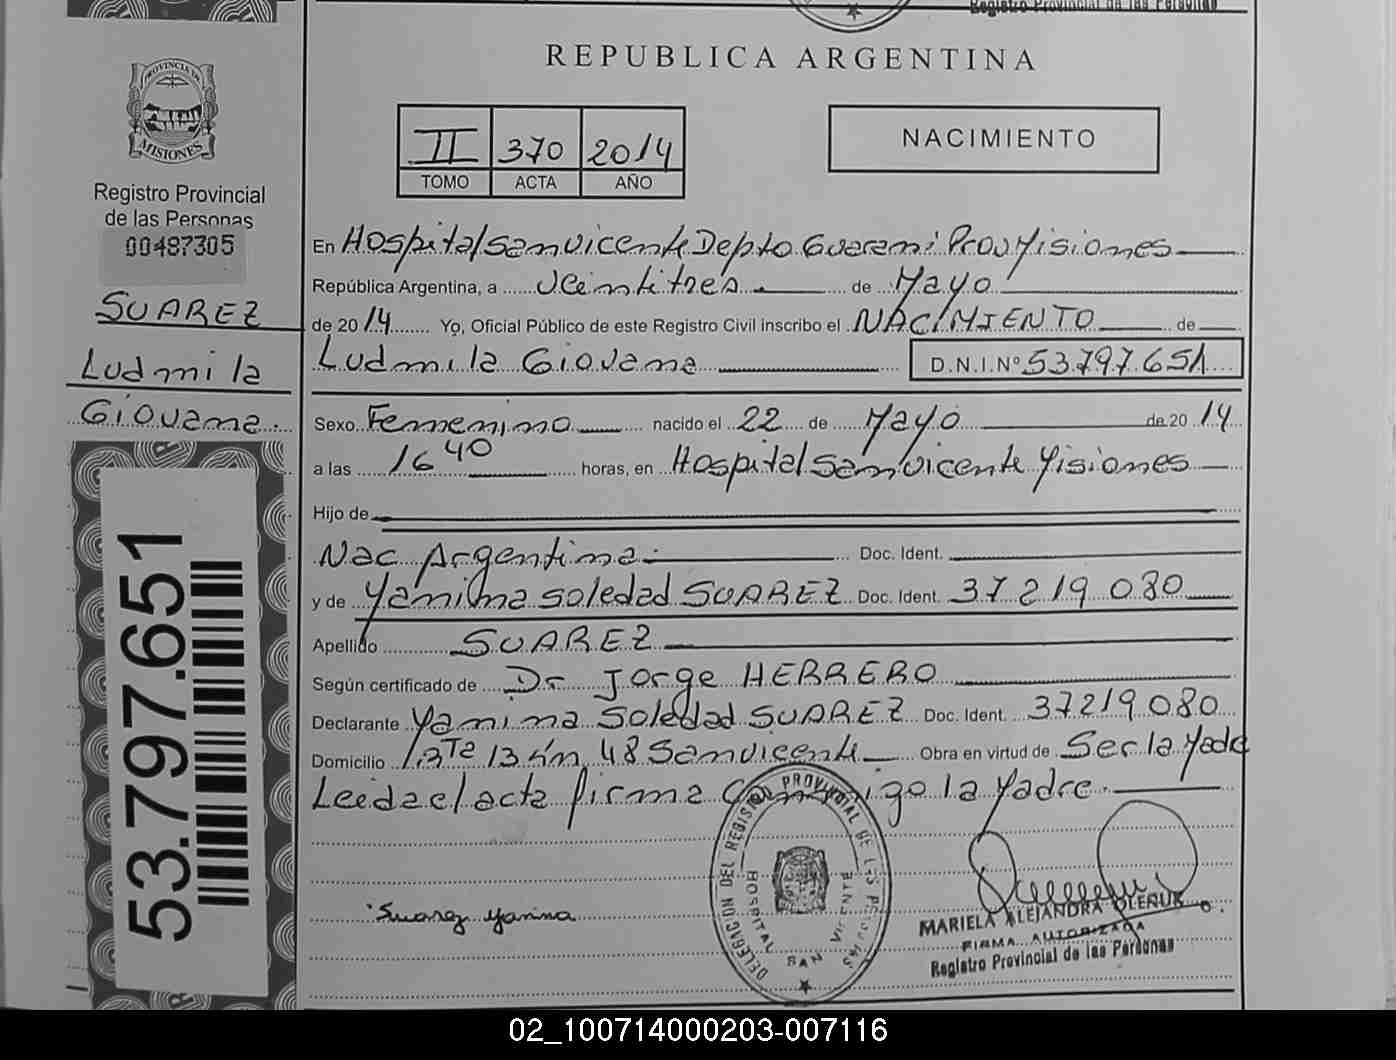 Registro Provincial de las Personas
REPUBLICA ARGENTINA
PROVINCIA DE
MISIONES
Registro Provincial
de las Personas
00487305
SUAREZ
Ludmila
Giovana.
53.797.651
II 370 2014
TOMO ACTA AÑO
NACIMIENTO
En Hospital San Vicente Depto Guarani Prov Misiones
República Argentina, a Veintitres de Mayo
de 2014 Yo, Oficial Público de este Registro Civil inscribo el NACIMIENTO de
Ludmila Giovana D.N.I.Nº 53.797.651
Sexo Femenino nacido el 22 de Mayo de 2014
a las 16 40 horas, en Hospital San Vicente Misiones
Hijo de
Nac Argentina. Doc. Ident.
y de Yamina Soledad SUAREZ Doc. Ident. 37 219 080
Apellido SUAREZ
Según certificado de Dr Jorge HERRERO
Declarante Yanina Soledad SUAREZ Doc. Ident. 37219080
Domicilio 13 km 48 San Vicente Obra en virtud de Ser la Madre
Leida el acta firma conmigo la Madre.
Suarez Yanina
DELEGACIÓN DEL REGISTRO PROVINCIAL DE LAS PERSONAS
HOSPITAL SAN VICENTE
MARIELA ALEJANDRA OLENUK
FIRMA AUTORIZADA
Registro Provincial de las Personas
02_100714000203-007116